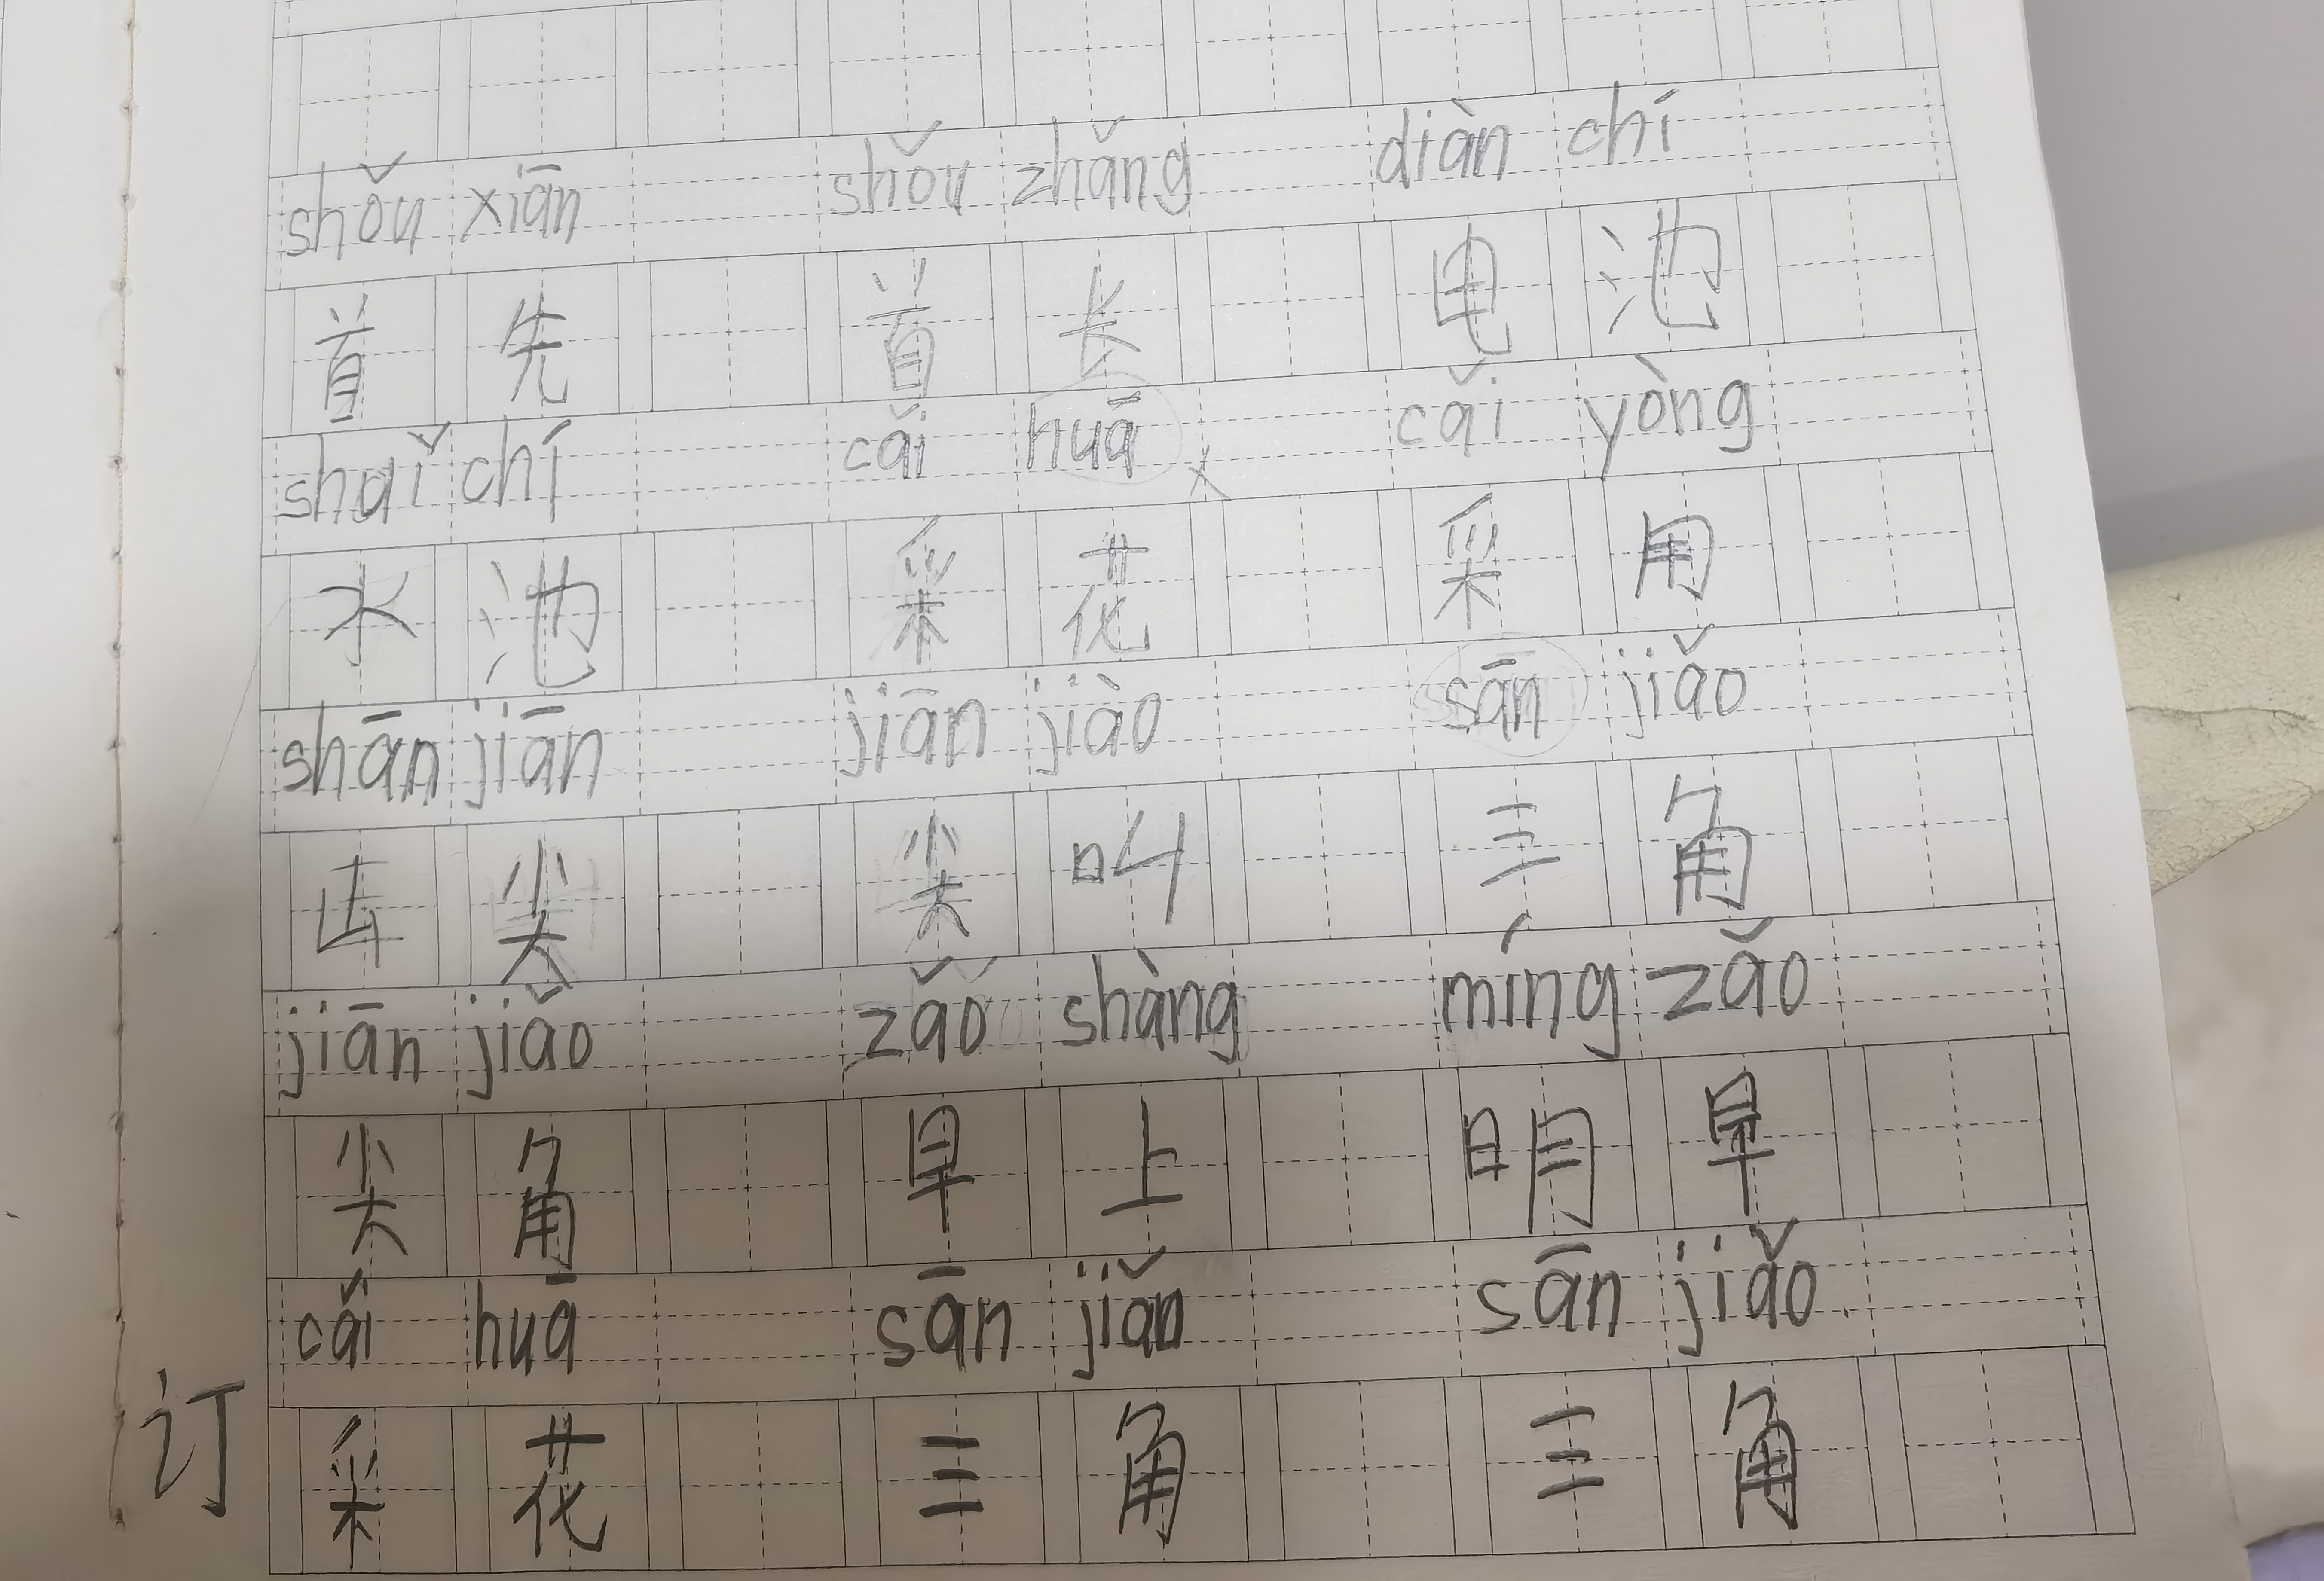 shǒu xiān shǒu zhǎng diàn chí
首先 首长 电池
shuǐ chí cǎi huā cǎi yòng
水池 采花 采用
shān jiān jiān jiào sān jiǎo
山尖 尖叫 三角
jiān jiǎo zǎo shàng míng zǎo
尖角 早上 明早
cǎi huā sān jiǎn sān jiǎo
订 采花 三角 三角